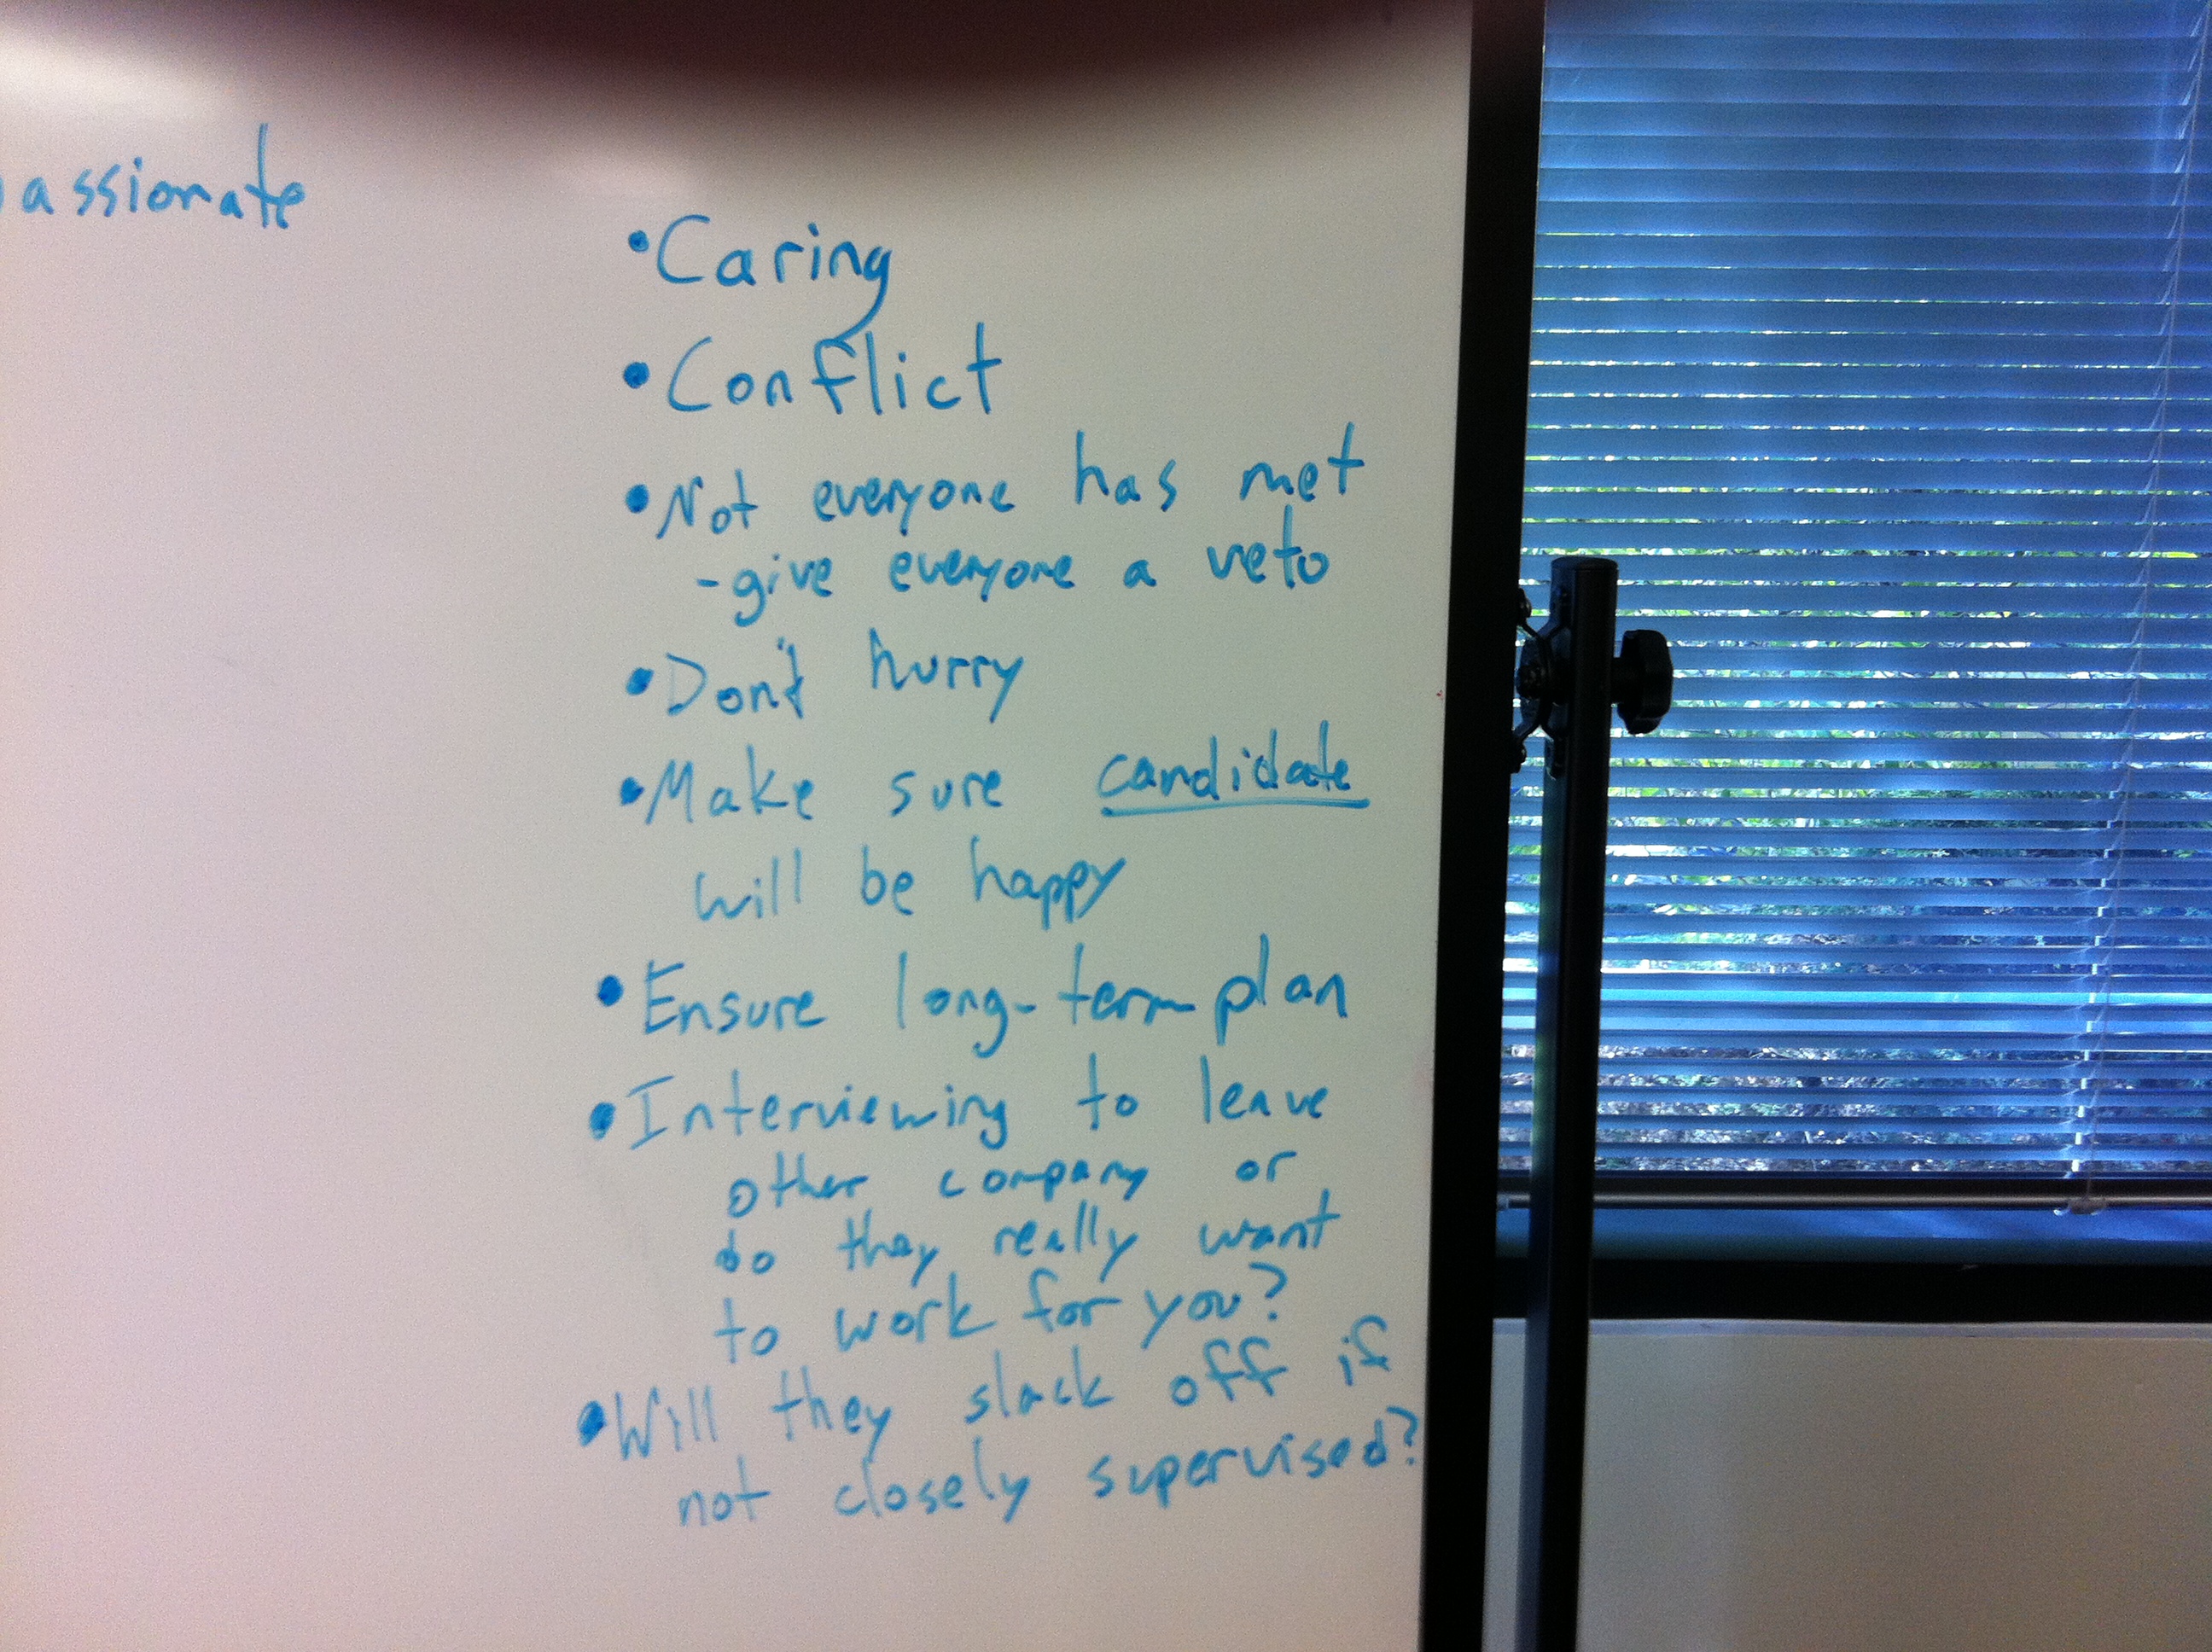 passionate
• Caring
• Conflict
• Not everyone has met
- give everyone a veto
• Don't hurry
• Make sure candidate
will be happy
• Ensure long-term plan
• Interviewing to leave
other company or
do they really want
to work for you?
• Will they slack off if
not closely supervised?